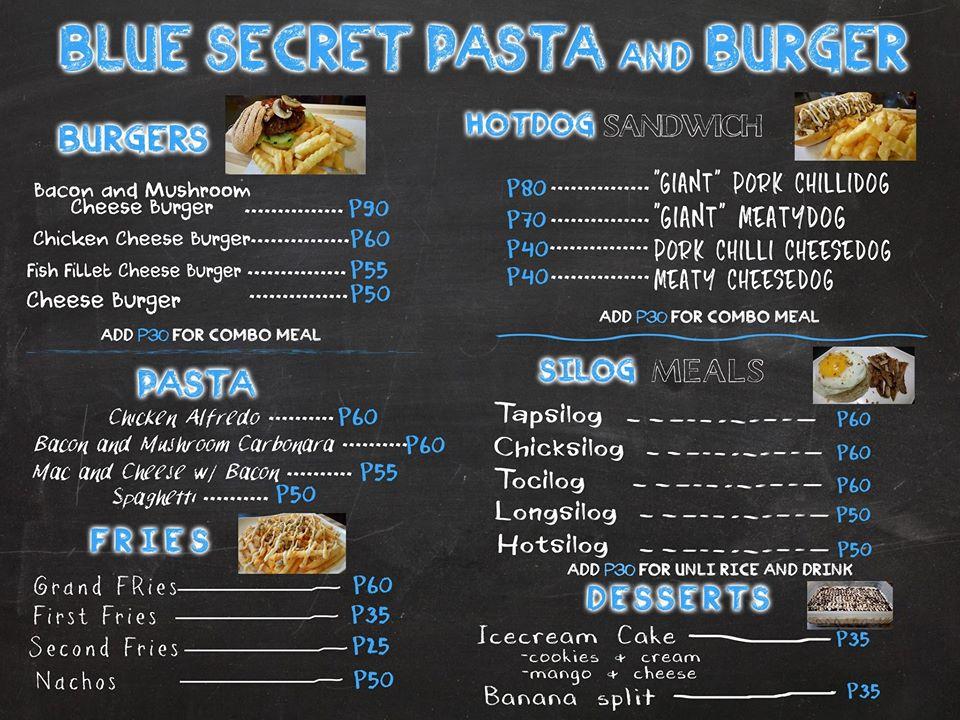 BLUE SECRET PASTA AND BURGER
BURGERS
Bacon and Mushroom
Cheese Burger ............... P90
Chicken Cheese Burger ............... P60
Fish Fillet Cheese Burger ............... P55
Cheese Burger ............... P50
ADD P30 FOR COMBO MEAL
PASTA
Chicken Alfredo .......... P60
Bacon and Mushroom Carbonara .......... P60
Mac and Cheese w/ Bacon .......... P55
Spaghetti .......... P50
FRIES
Grand FRies P60
First Fries P35
Second Fries P25
Nachos P50
HOTDOG SANDWICH
P80 ............... "GIANT" PORK CHILLIDOG
P70 ............... "GIANT" MEATYDOG
P40 ............... PORK CHILLI CHEESEDOG
P40 ............... MEATY CHEESEDOG
ADD P30 FOR COMBO MEAL
SILOG MEALS
Tapsilog P60
Chicksilog P60
Tocilog P60
Longsilog P50
Hotsilog P50
ADD P30 FOR UNLI RICE AND DRINK
DESSERTS
Icecream Cake P35
-cookies & cream
-mango & cheese
Banana split P35